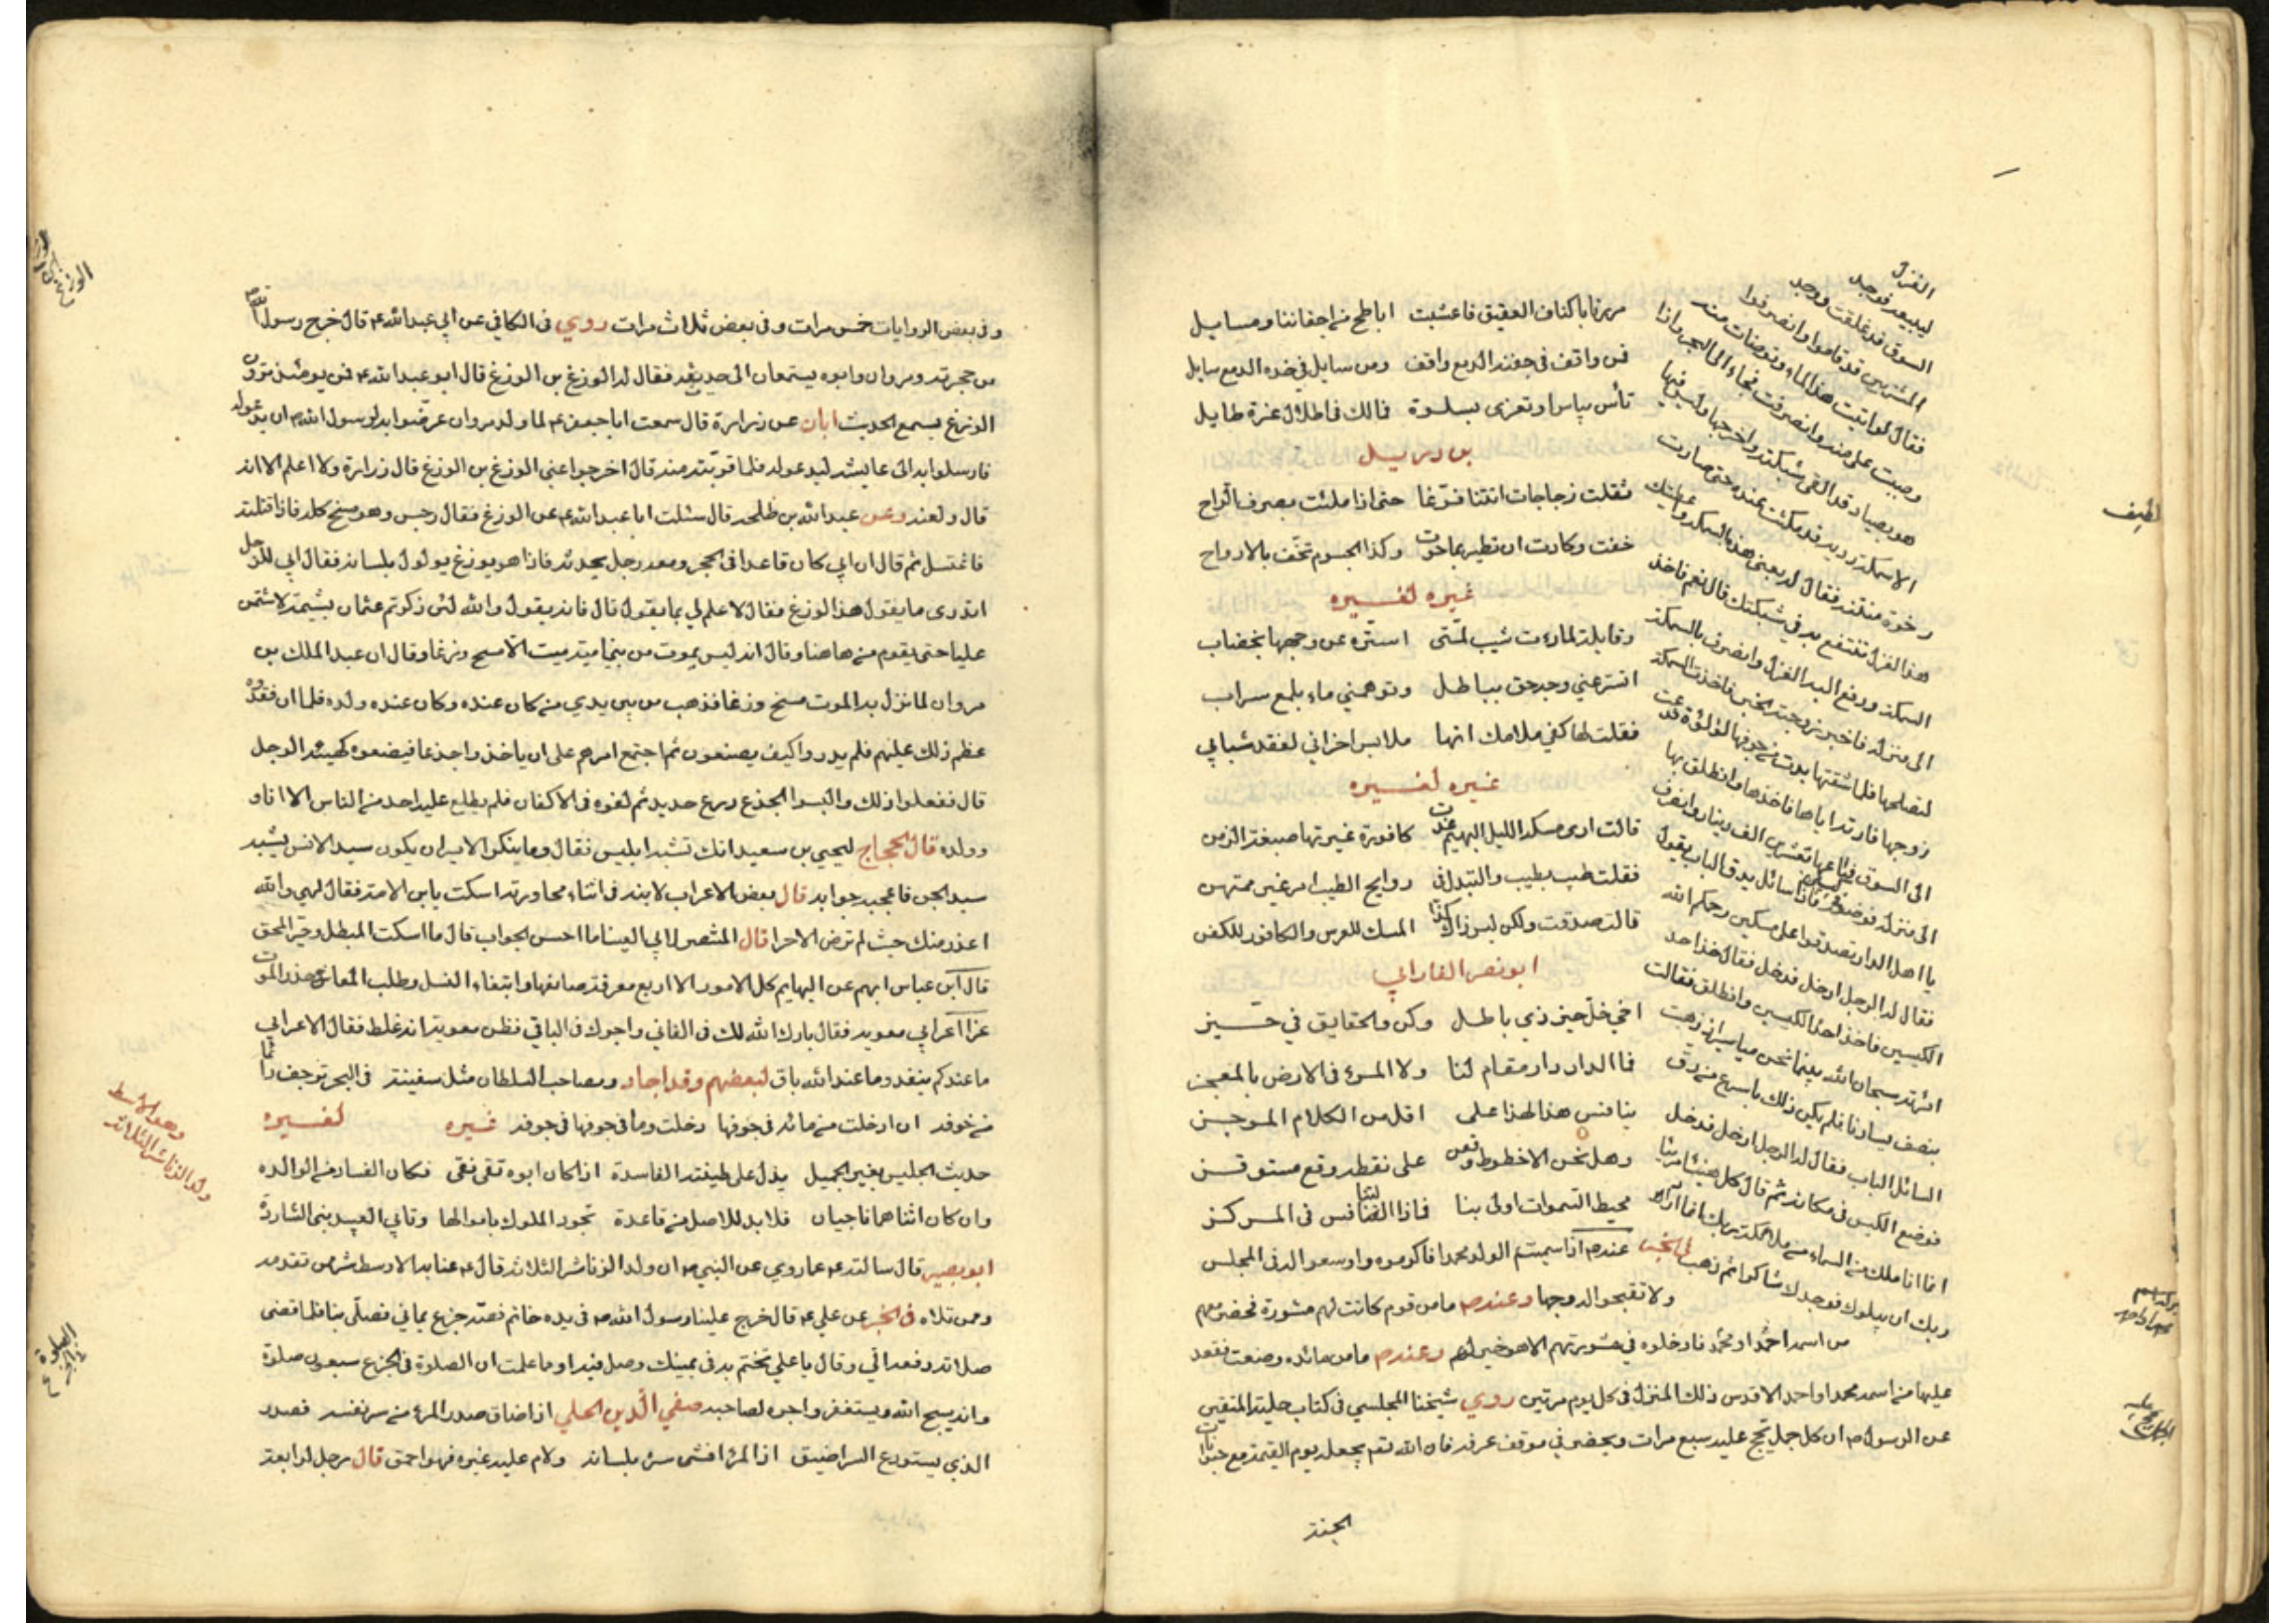 مررنا باكناف العقيق فاعشبت اباطح من اجفاننا ومسايل
فمن واقف في جفنه الدمع واقف ومن سايل في خده الدمع سايل
تأس بياس او تعزى بسلوة فمالك في اطلال عزة طايل
بن دريل
ثقلت زجاجات اتتنا فرّغا حتى اذا ملئت بصرف الراح
خفت وكادت ان تطير بما حوت وكذا الجسوم تخف بالارواح
غيره لغيره
وقابلة لما رءت شيب لمّتي استّره عن وجهها بخضاب
اتستر عني وجه حق بباطل وتوهمني ماء بلمع سراب
فقلت لها كفي ملامك انها ملابس احزاني لفقد شبابي
غيره لغيره
قالت ارى مسكه الليل البهيم غدت كافورة غيرتها صبغة الزمن
فقلت طيب بطيب والتبدل في روايح الطيب امر غير ممتهن
قالت صدقت ولكن ليس ذاك كذا المسك للعرس والكافور للكفن
ابو نصر الفارابي
اخي خل حيز ذي باطل وكن والحقايق في حيّز
فما الدار دار مقام لنا ولا المرء في الارض بالمعجز
ينافس هذا لهذا على اقل من الكلام الموجز
وهل نحن الا خطوط وقعن على نقطة وقع مستوفز
محيط السموات اولى بنا فماذا التنافس في المركز
عندهم اذا سميتم الولد محمدا فاكرموه واوسعوا له في المجلس
ولا تقبحوا له وجها وعندهم ما من قوم كانت لهم مشورة فحضر معهم
من اسمه احمد او محمد فادخلوه في مشورتهم الا هو خير لهم وعندهم ما من مائده وضعت فقعد
عليها من اسمه محمد او احمد الا قدس ذلك المنزل في كل يوم مرتين روي شيخنا المجلسي في كتاب حلية المتقين
عن الرسول ص ان كل جمل يحج عليه سبع مرات ويحضر في موقف عرفه فان الله تعم يجعله يوم القيمة مع حيوانات
الجنة
الغزل
ليبيعه فوجد
السوق قد غلقت ووجد
المشترين قد قاموا وانصرفوا
فقال لو اتيت هذا الماء وتوضات منه
وصببت علي منه وانصرفت فجاء الى البحر واذا
هو بصياد قد القى شبكته واخرجها وليس فيها
الا سمكة ردية قد مكثت عنده حتى صارت
رخوة منتنة فقال له بعني هذه السمكة واعطيك
هذا الغزل تنتفع به في شبكتك قال نعم فاخذ
السمكة ودفع اليه الغزل وانصرف بالسمكة
الى منزله فاخبر زوجته الخبر فاخذت السمكة
لتصلحها فلما شقتها بدت من جوفها لؤلؤة فدعت
زوجها فارته اياها فاخذها وانطلق بها
الى السوق فباعها بعشرين الف دينار وانصرف
الى منزله فوضع المال فاذا سائل يدق الباب يقول
يا اهل الدار تصدقوا على مسكين رحمكم الله
فقال له الرجل ادخل فدخل فقال خذ احد
الكيسين فاخذ احد الكيسين وانطلق فقالت
امرته سبحان الله بينما نحن مياسير اذ ذهبت
بنصف يسارنا فلم يكن ذلك باسرع من دق
السائل الباب فقال له الرجل ادخل فدخل
فوضع الكيس في مكانه ثم قال كل هنيئا مريئا
انما انا ملك من السماء من ملائكة ربك انما اراد
ربك ان يبلوك فوجدك شاكرا ثم ذهب في الخبر
لطيف
وفى بعض الروايات خمس مرات وفى بعض ثلاث مرات روي فى الكافي عن ابي عبد الله ع قال خرج رسول الله ص
من حجرته ومروان وابوه يستمعان الى حديثه فقال له الوزغ بن الوزغ قال ابو عبد الله ع فمن يومئذ ترون
الوزغ يسمع الحديث ابان عن زرارة قال سمعت ابا جعفر ع لما ولد مروان عرضوا به لرسول الله ص ان يدعو له
فارسلوا به الى عايشه ليدعو له فلما قربته منه قال اخرجوا عني الوزغ بن الوزغ قال زرارة ولا اعلم الا انه
قال ولعنه وعن عبد الله بن طلحه قال سئلت ابا عبد الله ع عن الوزغ فقال رجس وهو مسخ كله فاذا قتلته
فاغتسل ثم قال ان ابي كان قاعدا فى الحجر ومعه رجل يحدثه فاذا هو بوزغ يولول بلسانه فقال ابي للرجل
اتدرى ما يقول هذا الوزغ فقال لا علم لي بما يقول قال فانه يقول والله لئن ذكرتم عثمان بشتيمة لاشتمن
عليا حتى يقوم من هاهنا وقال انه ليس يموت من بني امية ميت الا مسخ وزغا وقال ان عبد الملك بن
مروان لما نزل به الموت مسخ وزغا فذهب من بين يدي من كان عنده وكان عنده ولده فلما ان فقدوه
عظم ذلك عليهم فلم يدروا كيف يصنعون ثم اجتمع امرهم على ان ياخذوا جذعا فيضعوه كهيئة الرجل
قال ففعلوا ذلك والبسوا الجذع درع حديد ثم لفوه فى الاكفان فلم يطلع عليه احد من الناس الا انا و
وولده قال الحجاج ليحيى بن سعيد انك تشبه ابليس فقال وما ينكر الامير ان يكون سيد الانس يشبه
سيد الجن فاعجبه جوابه قال بعض الاعراب لابنه فى اثناء محاورته اسكت يابن الامة فقال لهي والله
اعذر منك حيث لم ترض الا حرا قال المنتصر لابي العينا ما احسن الجواب قال ما اسكت المبطل وحير المحق
قال ابن عباس ابهم عن البهايم كل الامور الا اربع معرفة صانعها وابتغاء النسل وطلب المعاش وحذر الموت
عزا اعرابي معويه فقال بارك الله لك فى الفاني واجرك فى الباقي فظن معوية انه غلط فقال الاعرابي
ما عندكم ينفد وما عند الله باق لبعضهم وقد اجاد ومصاحب السلطان مثل سفينة فى البحر ترجف دائما
من خوفه ان ادخلت من مائه في جوفها دخلت وما في جوفها في جوفه غيره لغيره
حديث الجليس بغير الجميل يدل على طينته الفاسدة اذا كان ابوه تقى نقى فكان الفساد من الوالده
وان كان اثناهما ناجيان فلا بد للاصل من قاعدة تجود الملوك باموالها وتابي العبيد بنى الشاردة
ابو بصير قال سالته ع عما روي عن النبي ص ان ولد الزنا شر الثلاثه قال ع عنا به الاوسط شر من تقدمه
وممن تلاه في الخبر عن علي ع قال خرج علينا رسول الله ص فى يده خاتم فصه جزع يماني فصلى بنا فلما قضى
صلاته دفعه الي وقال يا علي تختم به في يمينك وصل فيه اوما علمت ان الصلوة في الجزع سبعون صلوة
وانه يسبح الله ويستغفر واجره لصاحبه صفي الدين الحلي اذا ضاق صدر المرء من سر نفسه فصدر
الذي يستودع السر اضيق اذا المرء افشى سره بلسانه ولام عليه غيره فهو احمق قال رجل لرابعة
الوزغ
وهو الاوسط
ولد الزنا شر الثلاثه
الصلوة